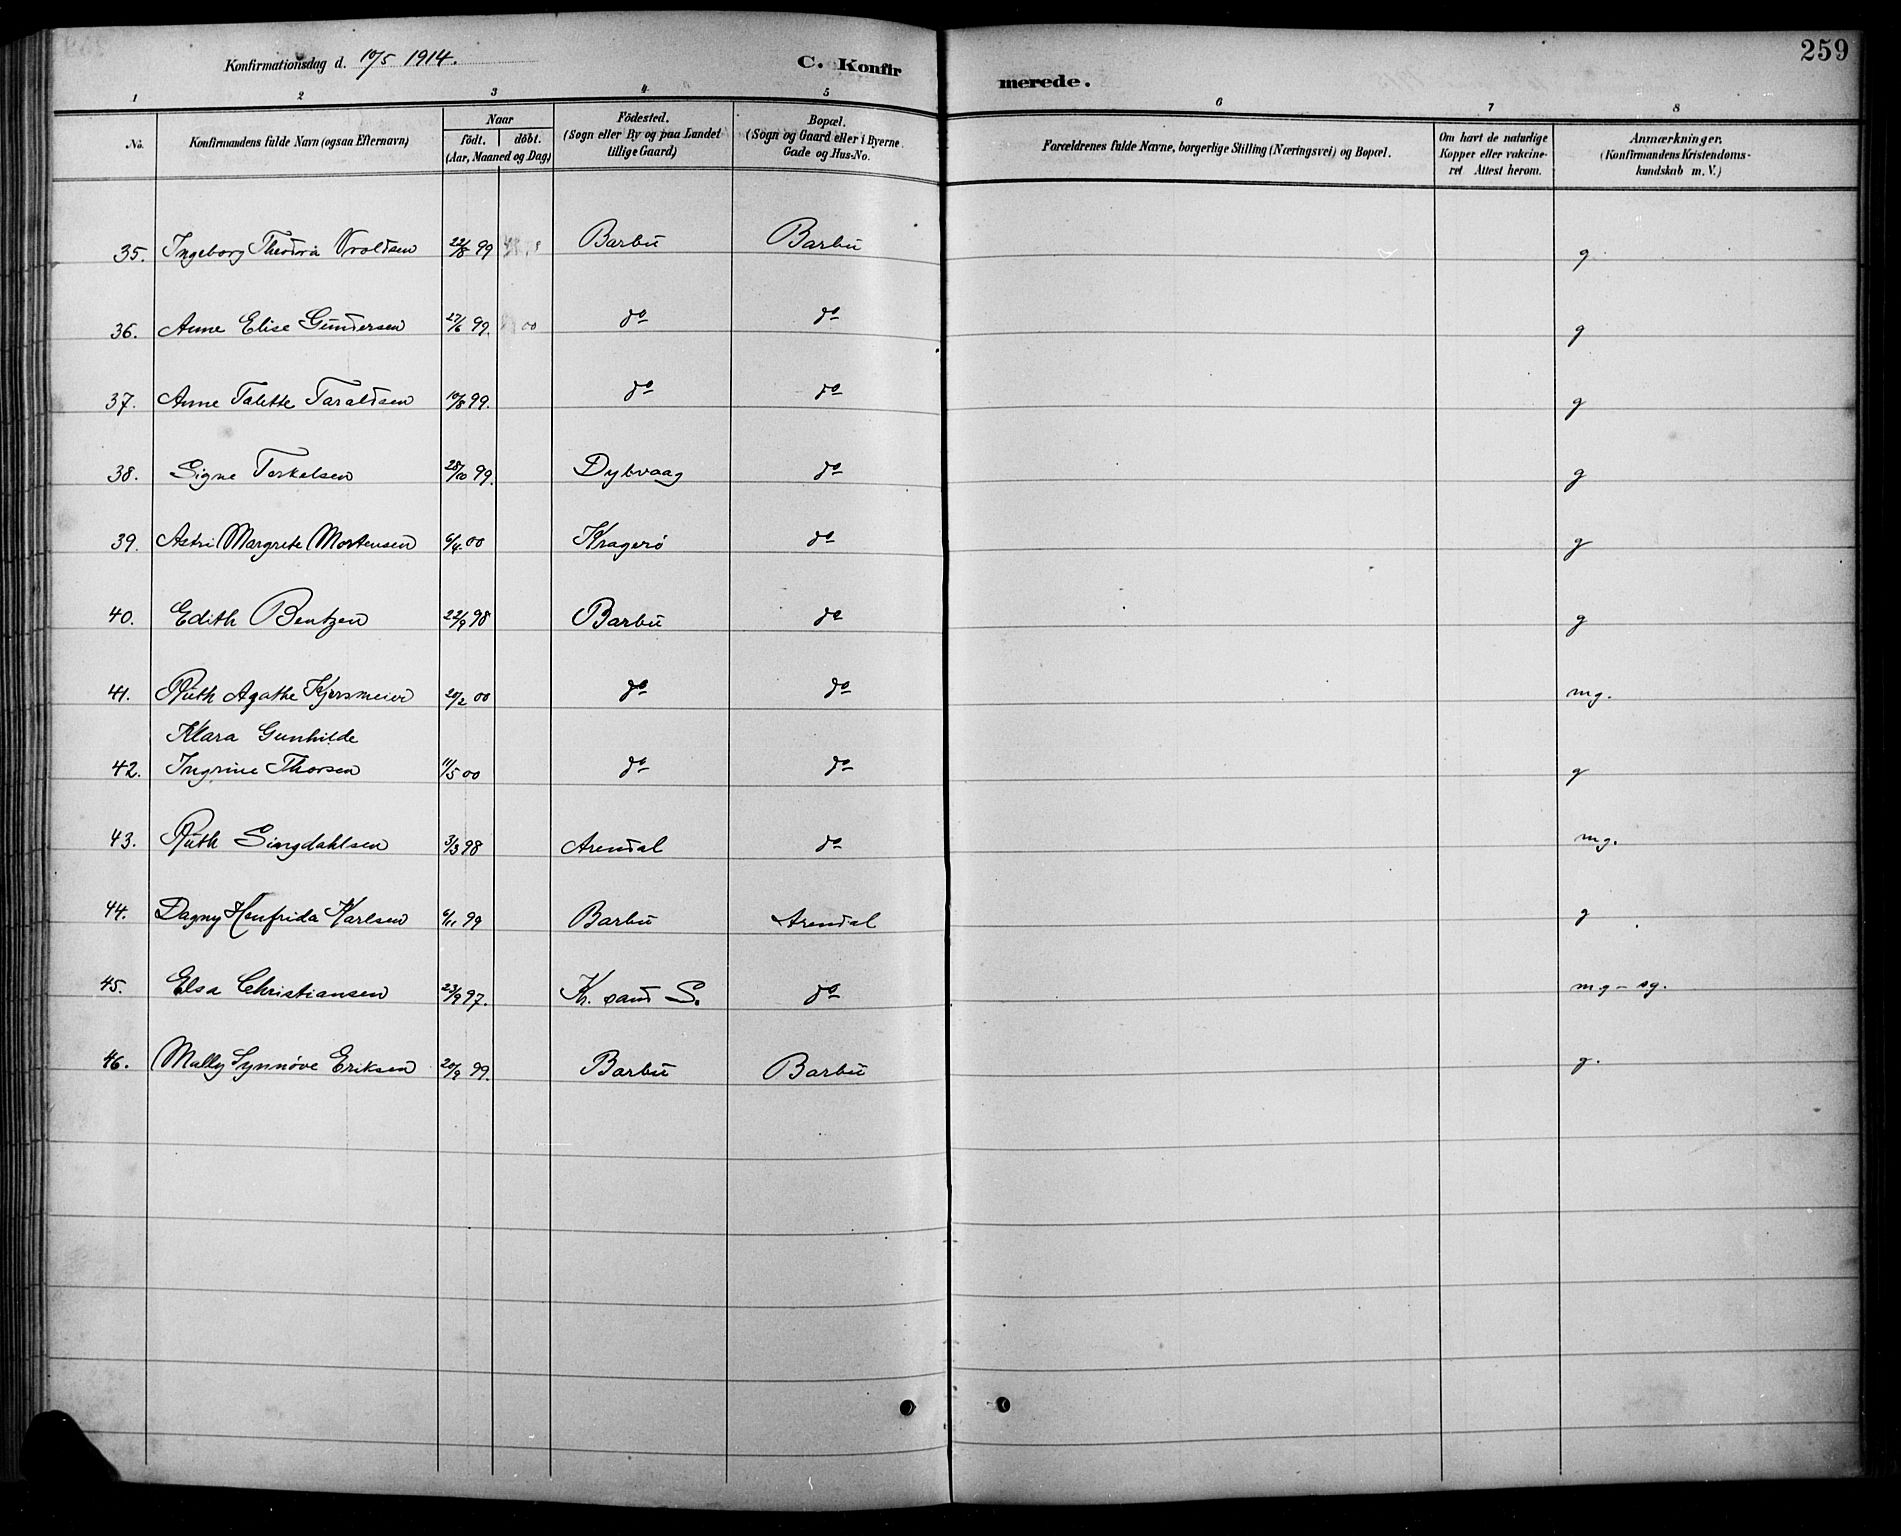 259
Konfirmationsdag d. 10/5 1914.
C. Konfirmerede.
1 2 3 4 5 6 7 8
No.
Konfirmandens fulde Navn (ogsaa Efternavn)
Naar
födt. döbt.
(Aar, Maaned og Dag)
Födested.
(Sogn eller By og paa Landet
tillige Gaard)
Bopæl.
(Sogn og Gaard eller i Byerne
Gade og Hus-No.
Forældrenes fulde Navne, borgerlige Stilling (Næringsvei) og Bopæl.
Om havt de naturlige
Kopper eller vakcine-
ret Attest herom.
Anmærkninger.
(Konfirmandens Kristendoms-
kundskab m. V.)
35. Ingeborg Theodora Vroldsen 22/8 99 Barbu Barbu g
36. Anne Elise Gundersen 27/6 99. do do g
37. Anne Talette Taraldsen 10/8 99. do do g
38. Signe Terkelsen 28/10 99. Dybvaag do g
39. Astri Margrete Mortensen 6/4 00 Kragerö do g
40. Edith Bentzen 22/9 98 Barbu do g
41. Ruth Agathe Kjersmeier 20/2 00 do do mg.
Klara Gunhilde
42. Ingrine Thorsen 11/5 00 do do g
43. Ruth Singdahlsen 3/3 98 Arendal do mg.
44. Dagny Henfrida Karlsen 6/11 99 Barbu Arendal g
45. Elsa Christiansen 23/9 97. Kr. sand S. do mg - sg.
46. Mally Synnøve Eriksen 20/9 99. Barbu Barbu g.